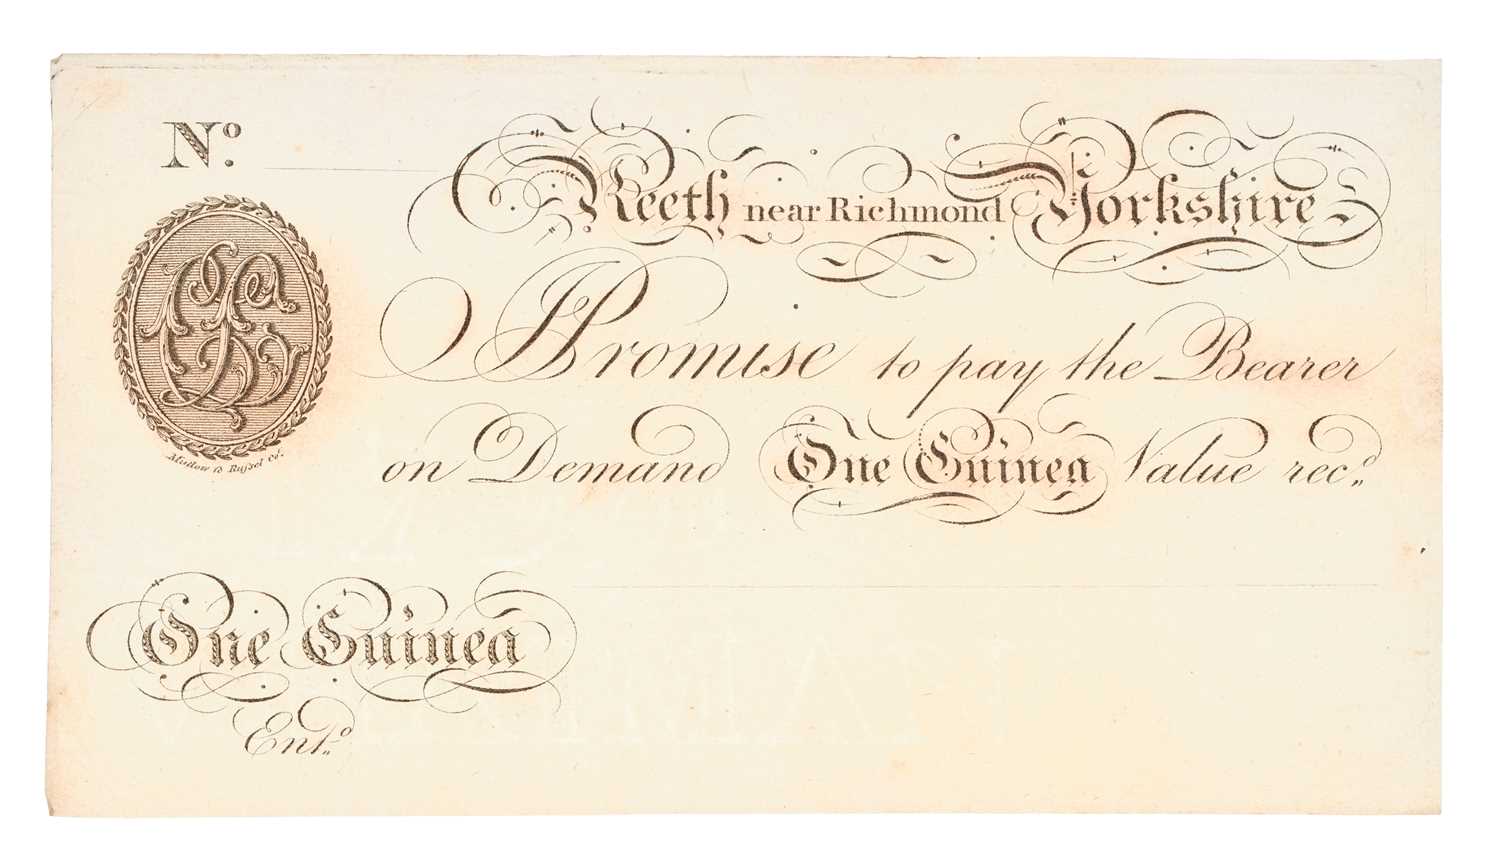 Nº.
Reeth near Richmond Yorkshire
I Promise to pay the Bearer
on Demand One Guinea Value rec.ᵈ
One Guinea
Ent.ᵈ